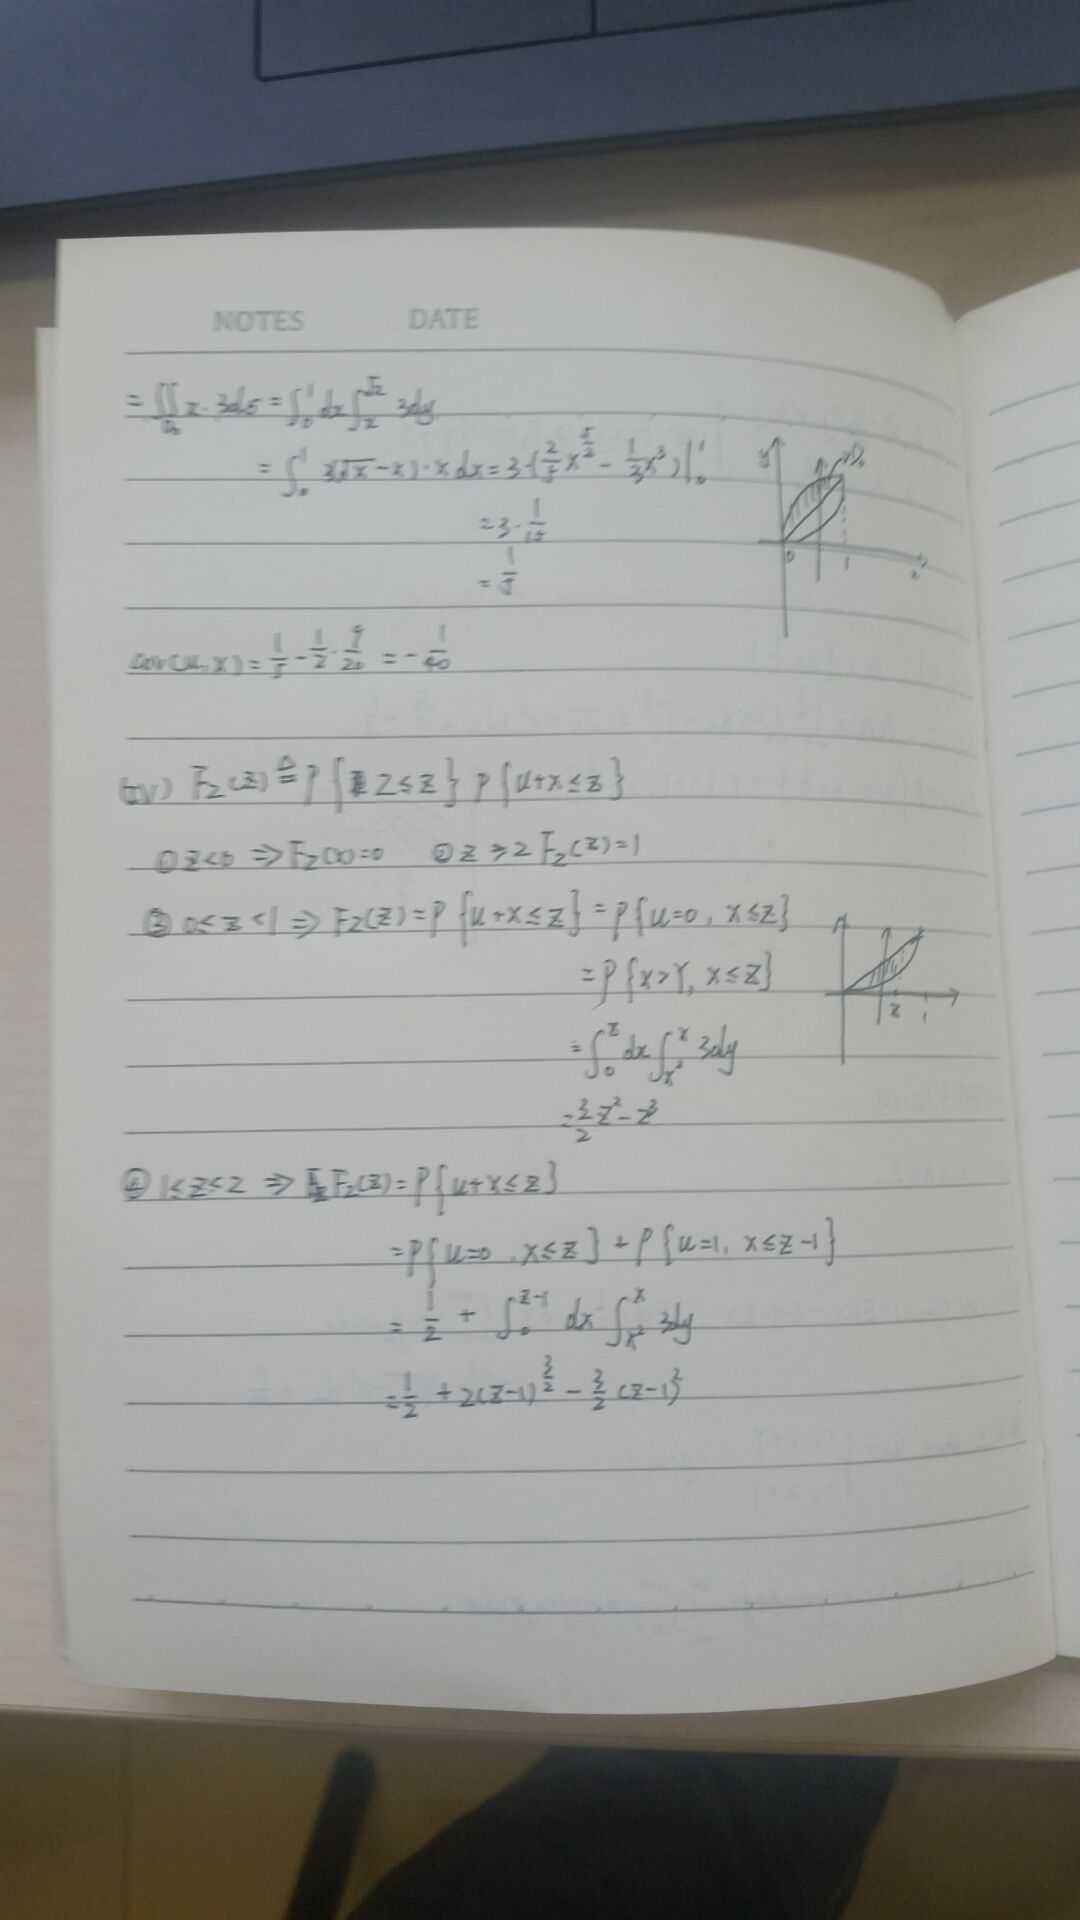 NOTES DATE
= ∬_{D₀} x·3dσ = ∫₀¹ dx ∫ₓ^{√x} 3dy
= ∫₀¹ 3(√x - x)·x dx = 3·(2/5 x^{5/2} - 1/3 x³)|₀¹
= 3·1/15
= 1/5
y D₀ 0 1 x
cov(u,x) = 1/5 - 1/2·9/20 = -1/40
(IV) F_Z(z) ≜ P{Z≤z} P{u+x≤z}
① z<0 ⇒ F_Z(x)=0 ② z≥2 F_Z(z)=1
③ 0≤z<1 ⇒ F_Z(z) = P{u+x≤z} = P{u=0, x≤z}
= P{x>Y, x≤z}
z 1
= ∫₀^z dx ∫_{x²}^x 3dy
= 3/2 z² - z³
④ 1≤z<2 ⇒ F_Z(z) = P{u+x≤z}
= P{u=0, x≤z} + P{u=1, x≤z-1}
= 1/2 + ∫₀^{z-1} dx ∫_{x²}^x 3dy
= 1/2 + 2(z-1)^{3/2} - 3/2 (z-1)²